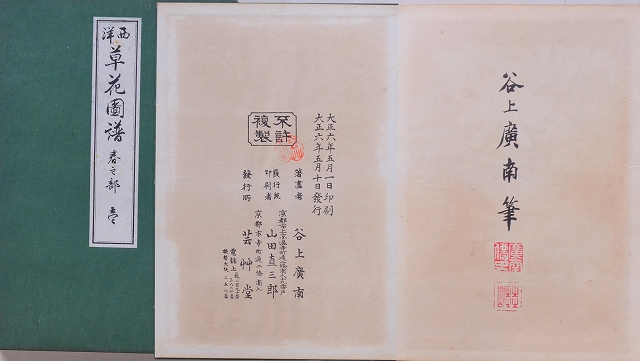 西洋
草花圖譜 春之部 壱
谷上廣南筆
大正六年五月一日印刷
大正六年五月十日發行
不許
複製
著畫者 谷上廣南
發行兼
印刷者 山田直三郎
京都市寺町通二條南入
發行所 芸艸堂